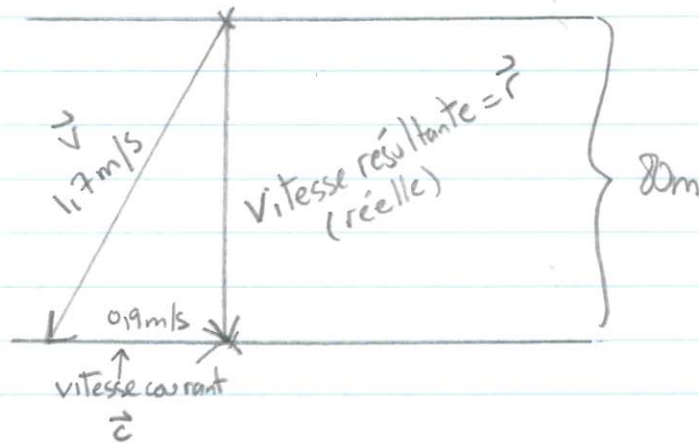 v⃗
1,7m/s
Vitesse résultante = r⃗
(réelle)
80m
0,9m/s
↑
vitesse courant
c⃗